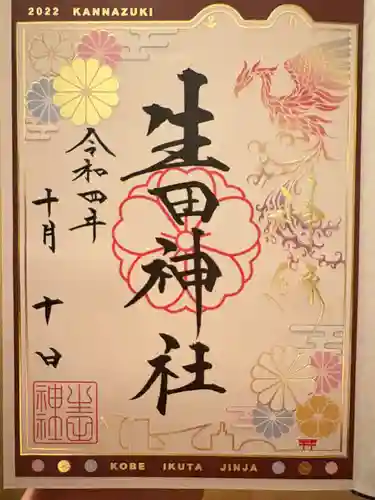 2022 KANNAZUKI
生田神社
令和四年
十月 十日
KOBE IKUTA JINJA